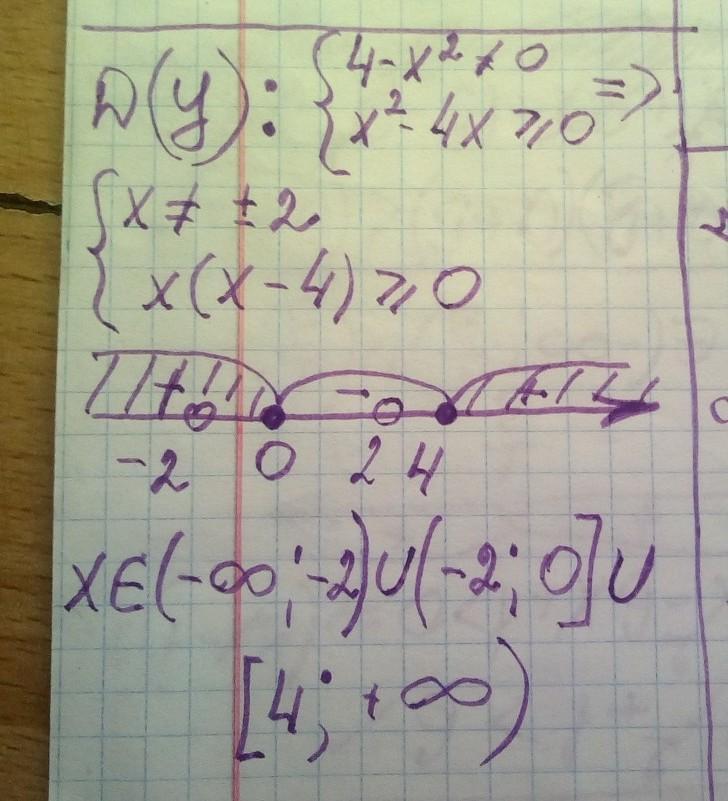 D(y): { 4-x² ≠ 0
x²-4x ⩾ 0 =>
{ x ≠ ±2
x(x-4) ⩾ 0
+ - +
-2 0 2 4
x∈(-∞;-2)∪(-2;0]∪
[4;+∞)